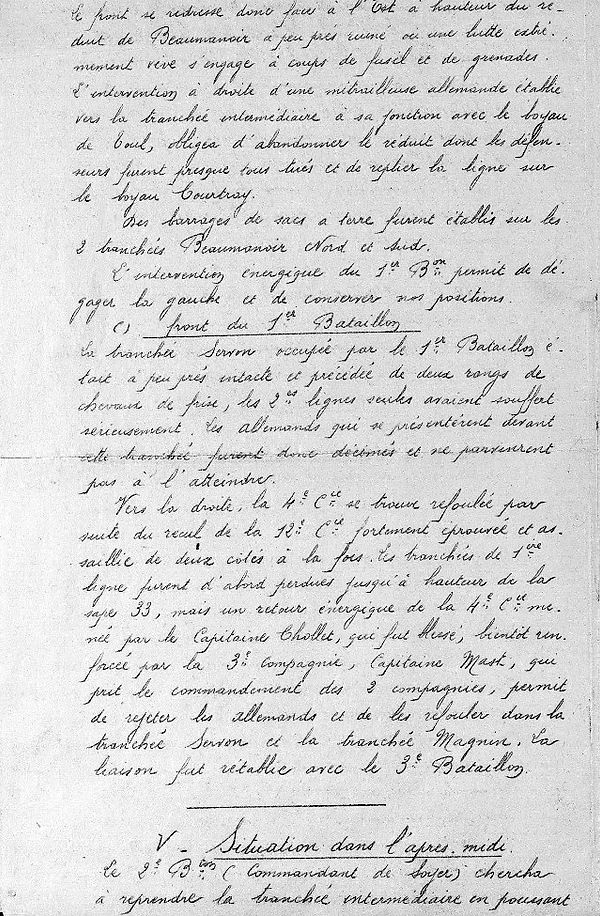 le front se redresse donc face à l'Est à hauteur du ré-
duit de Beaumanoir à peu près ruiné où une lutte extrê-
mement vive s'engage à coups de fusil et de grenades.
L'intervention à droite d'une mitrailleuse allemande établie
vers la tranchée intermédiaire à sa jonction avec le boyau
de Toul, obligea d'abandonner le réduit dont les défen-
seurs furent presque tous tués et de replier la ligne sur
le boyau Courtray.
Des barrages de sacs à terre furent établis sur les
2 tranchées Beaumanoir Nord et Sud.
L'intervention énergique du 1er Bon permit de dé-
gager la gauche et de conserver nos positions.
C) front du 1er Bataillon
La tranchée Servon occupée par le 1er Bataillon é-
tait à peu près intacte et précédée de deux rangs de
chevaux de frise, les 2es lignes seules avaient souffert
sérieusement. Les allemands qui se présentèrent devant
cette tranchée furent donc décimés et ne parvinrent
pas à l'atteindre.
Vers la droite, la 4e Cie se trouve refoulée par
suite du recul de la 12e Cie fortement éprouvée et as-
saillie de deux côtés à la fois. Les tranchées de 1ère
ligne furent d'abord perdues jusqu'à hauteur de la
sape 33, mais un retour énergique de la 4e Cie me-
née par le Capitaine Chollet, qui fut blessé, bientôt ren-
forcée par la 3e compagnie, Capitaine Mast, qui
prit le commandement des 2 compagnies, permit
de rejeter les allemands et de les refouler dans la
tranchée Servon et la tranchée Magnin. La
liaison fut rétablie avec le 3e Bataillon.
V - Situation dans l'après-midi.
Le 2e Bon (Commandant de Soyer) chercha
à reprendre la tranchée intermédiaire en poussant